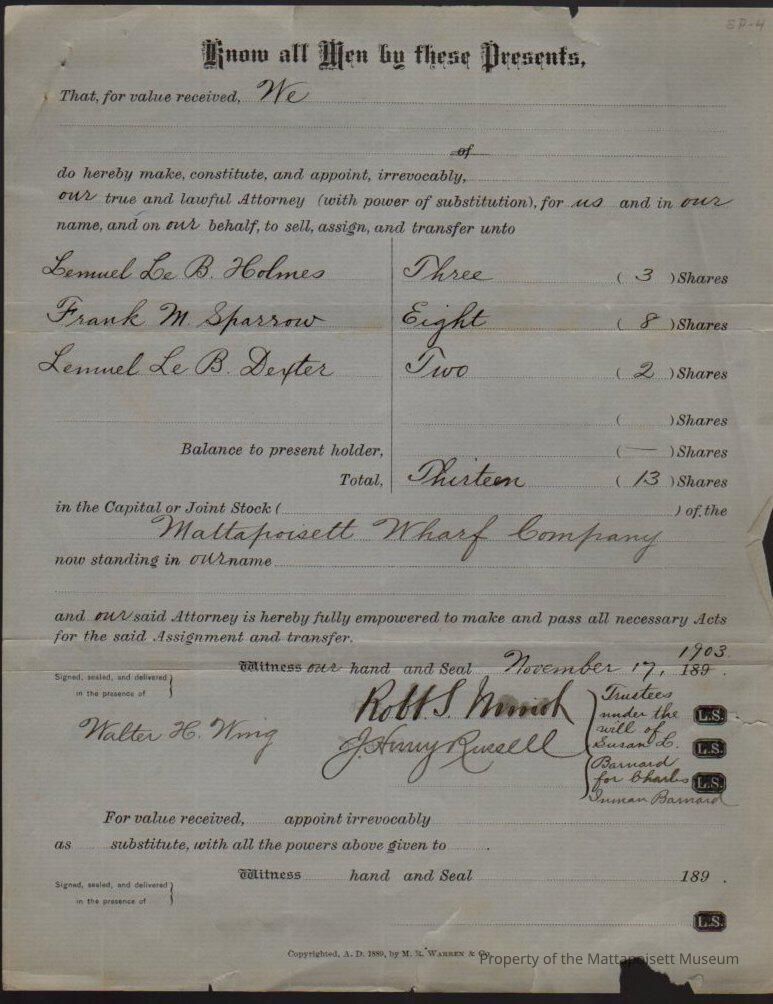 SP-4
Know all Men by these Presents,
That, for value received, We
of
do hereby make, constitute, and appoint, irrevocably,
our true and lawful Attorney (with power of substitution), for us and in our
name, and on our behalf, to sell, assign, and transfer unto
Lemuel Le B. Holmes Three ( 3 ) Shares
Frank M. Sparrow Eight ( 8 ) Shares
Lemuel Le B. Dexter Two ( 2 ) Shares
( ) Shares
Balance to present holder, ( — ) Shares
Total, Thirteen ( 13 ) Shares
in the Capital or Joint Stock ( ) of the
Mattapoisett Wharf Company
now standing in our name
and our said Attorney is hereby fully empowered to make and pass all necessary Acts
for the said Assignment and transfer.
1903
Witness our hand and Seal November 17, 189 .
Signed, sealed, and delivered }
in the presence of
Robt. S. Trustees
under the L.S.
Walter H. Wing will of
J. Henry Russell Susan L. L.S.
Barnard
for Charles L.S.
Inman Barnard
For value received, appoint irrevocably
as substitute, with all the powers above given to .
Witness hand and Seal 189 .
Signed, sealed, and delivered }
in the presence of
L.S.
Copyrighted, A. D. 1889, by M. R. Warren & Co.
Property of the Mattapoisett Museum